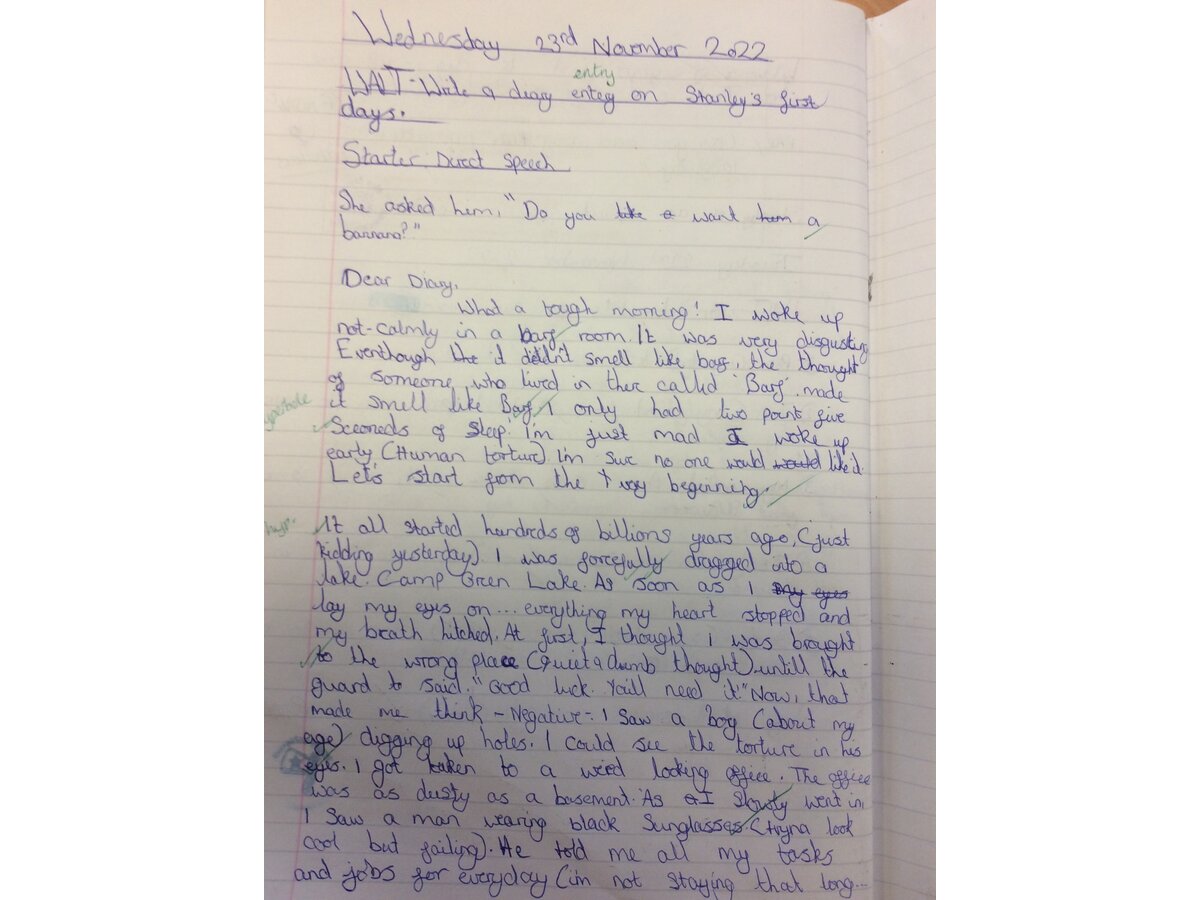 Wednesday 23rd November 2022
entry
WALT-Write a diary entey on Stanley's first
days.
Starter: Direct Speech
She asked him, "Do you like a want him a
bannana?"
Dear Diary,
What a tough morning! I woke up
not-calmly in a Barf room. It was very disgusting
Eventhough the it didn't smell like barf, the thought
of someone who lived in there called 'Barf' made
it smell like Barf. I only had two point five
Sceoneds of Sleep! I'm just mad I woke up
early (Human torture). I'm sure no one would would like it.
Let's start from the very beginning.
It all started hundreds of billions years ago, (just
kidding yesterday). I was forcefully dragged into a
lake. Camp Green Lake. As soon as I my eyes
lay my eyes on... everything my heart stopped and
my breath hitched. At first, I thought i was brought
to the wrong place (Quiet a dumb thought). untill the
guard to said. "Good luck. You'll need it" Now, that
made me think - Negative-. I saw a boy (about my
age) digging up holes. I could see the torture in his
eyes. I got taken to a weird looking office. The office
was as dusty as a basement. As I slowly went in,
I saw a man wearing black Sunglasses. (tryna look
cool but failing). He told me all my tasks
and jobs for everyday (i'm not staying that long...